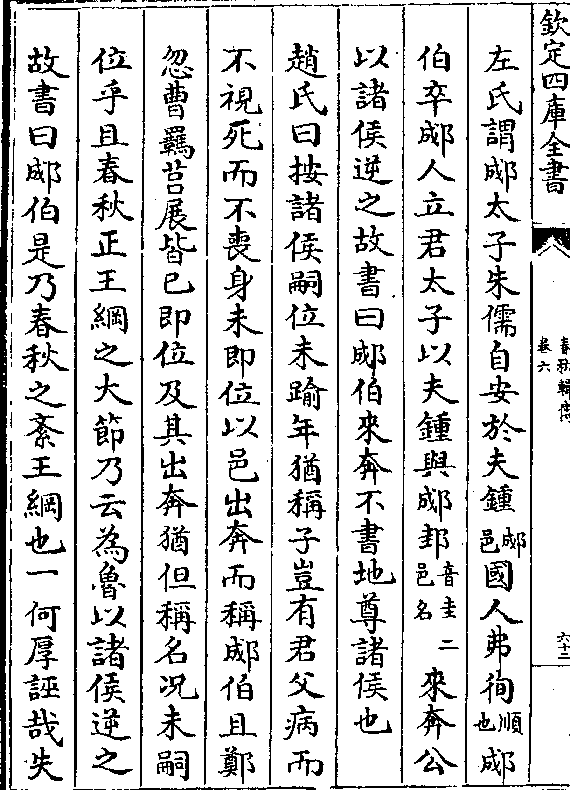 欽定四庫全書
春秋輯傳
卷六
六十三
左氏謂郕太子朱儒自安於夫鍾郕邑國人弗徇順也郕
伯卒郕人立君太子以夫鍾與郕邽音圭邑名二來奔公
以諸侯逆之故書曰郕伯來奔不書地尊諸侯也
趙氏曰按諸侯嗣位未踰年猶稱子豈有君父病而
不視死而不喪身未即位以邑出奔而稱郕伯且鄭
忽曹羈莒展皆已即位及其出奔猶但稱名况未嗣
位乎且春秋正王綱之大節乃云為魯以諸侯逆之
故書曰郕伯是乃春秋之紊王綱也一何厚誣哉失